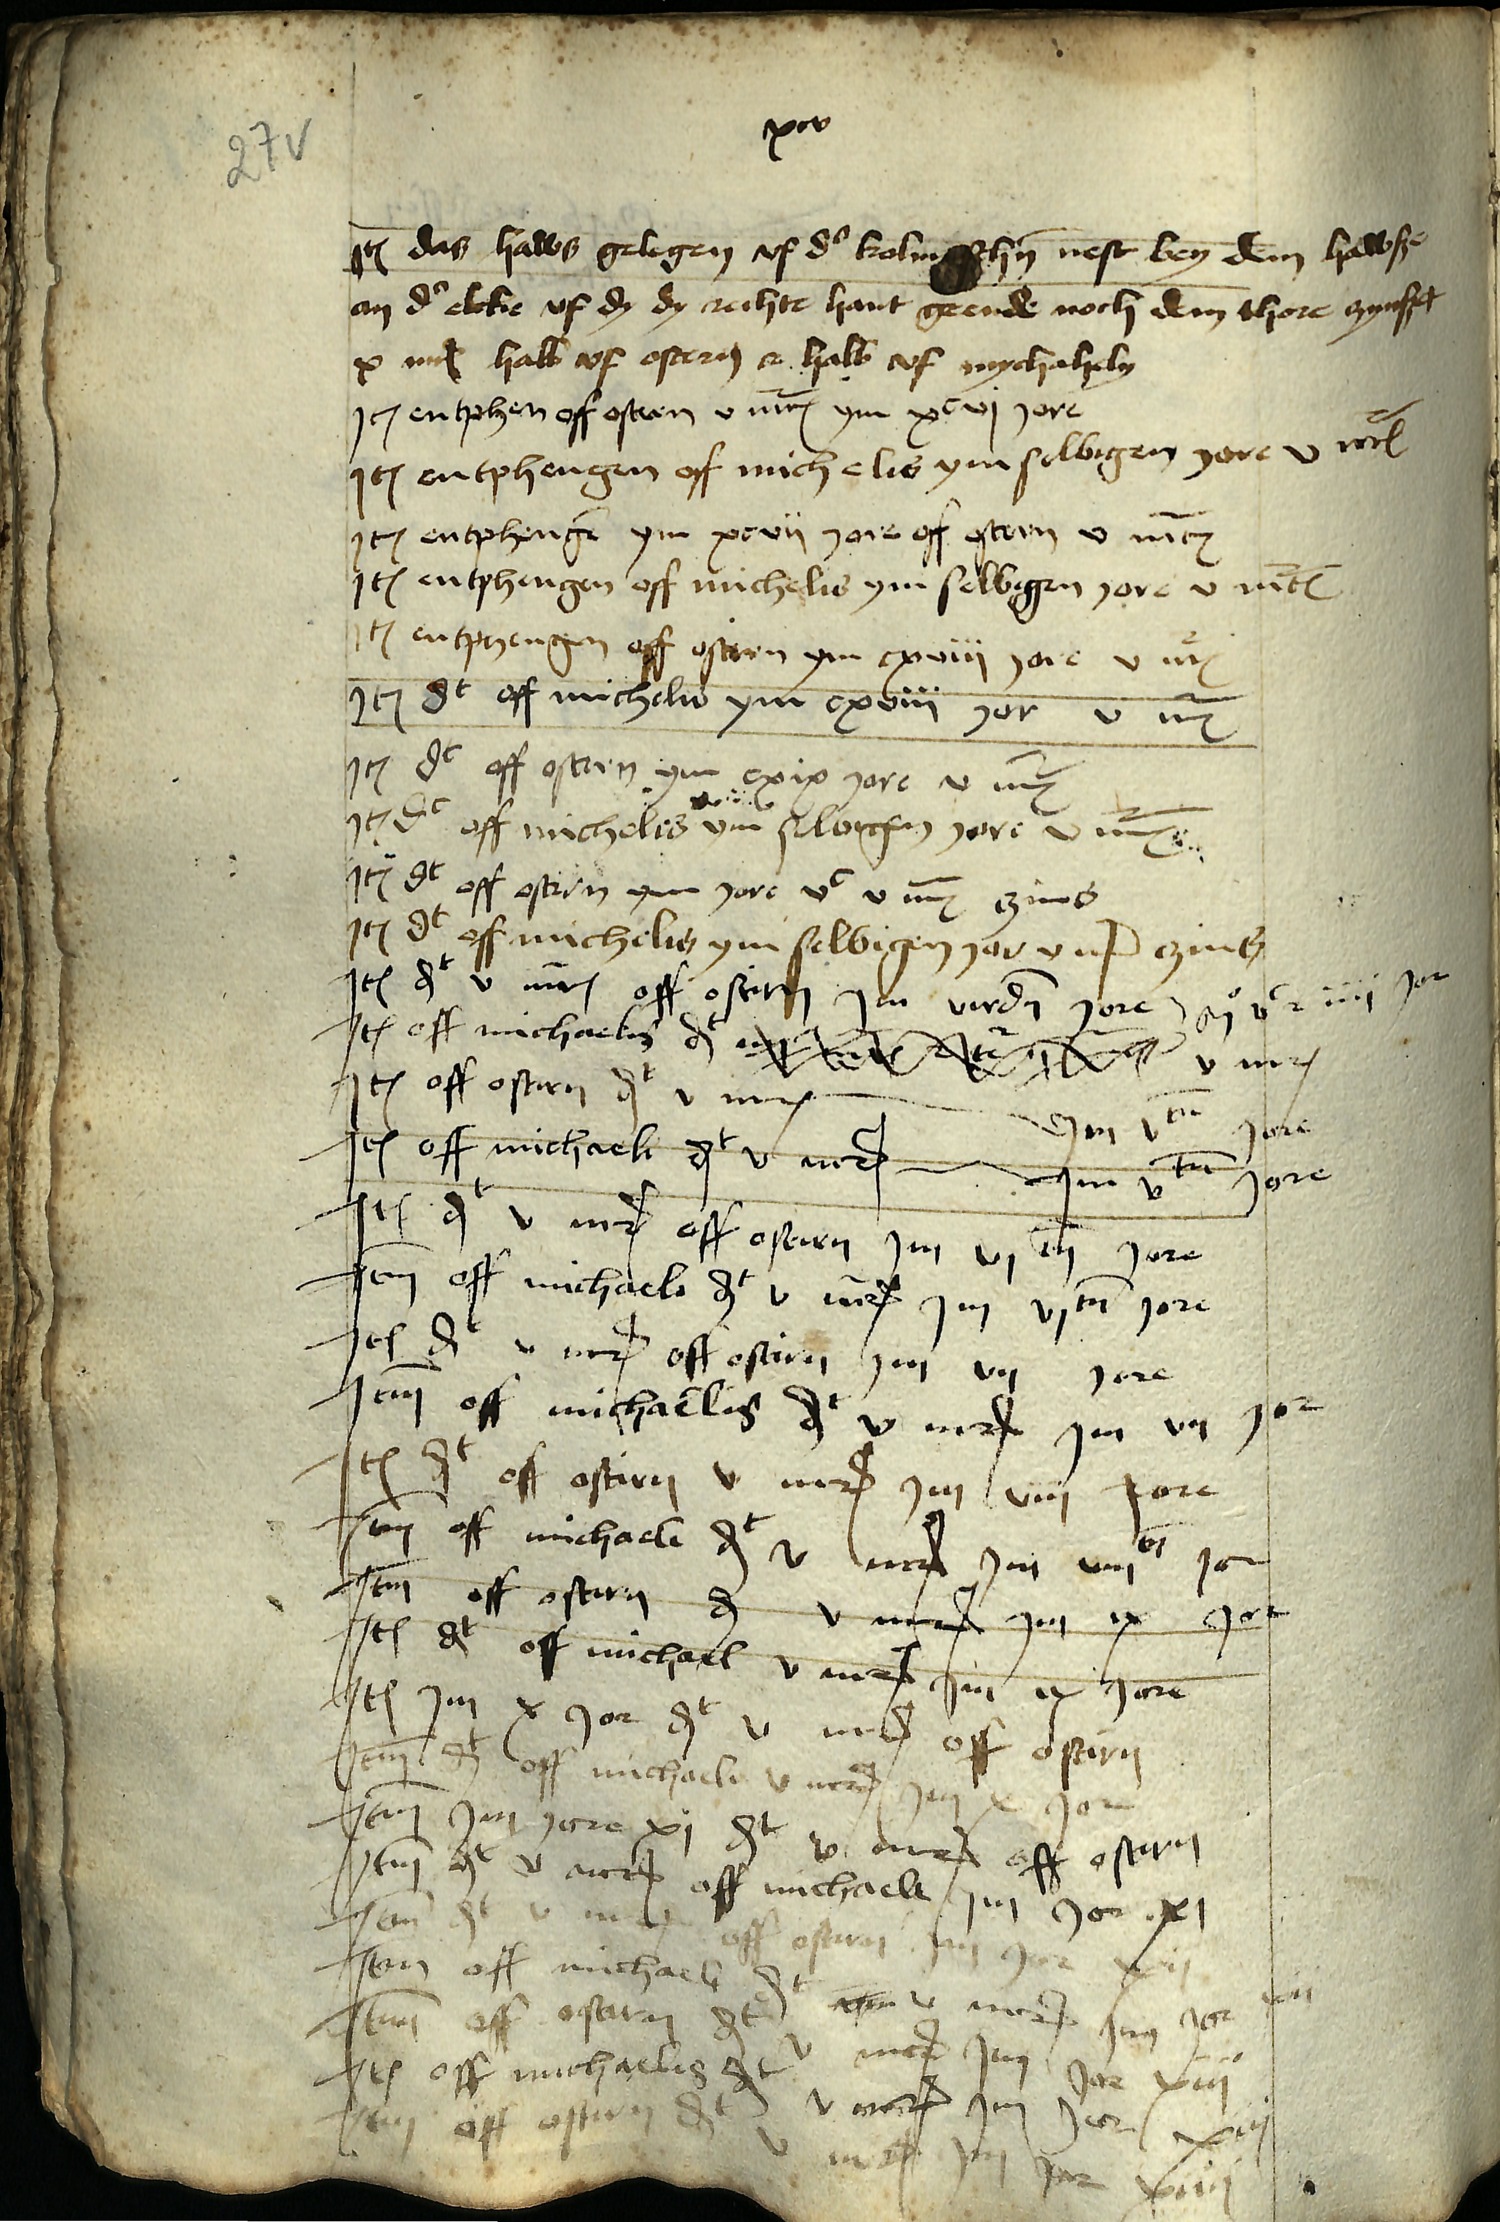 27v
xcv
Itē das haws gelegen vf dʾ nest bey dem hawsze
an dʾ ekke vf dy dy rechte hant geende noch dem thore czinszet
x mrc halb vf ostern halb vf mychahely
Itē entphen off ostern v mrc ym xcvj jore
Itē entphengen off michelis ym selbigen jore v mrc
Itē entphengē ym xcvii jore off ostern v mrc
Itē entphengen off michelis ym selbigen jore v mrc
Itē entphengen off ostern ym cxviii jore v mrc
Itē dt off michelis ym cxviii jor v mrc
Itē dt off ostern ym cxix jore v mrc
Itē dt off michelis ym selbigen jore v mrc
Itē dt off ostern ym jore vc v mrc czins
Itē dt off michelis ym selbigen jor v mrc czins
Itē dt v mrc off ostern Im virdn jore iiii jor
Itē off michaelis dt v mrc
Itē off ostern dt v mrc Im vten jore
Itē off michaeli dt v mrc Im vten jore
Itē dt v mrc off ostern Im vj ten jore
Item off michaelis dt v mrc Im vjten jore
Itē dt v mrc off ostirn Im vii jore
Item off michaelis dt v mrc Im vii jor
Itē dt off ostirn v mrc Im viii jore
Item off michaeli dt v mrc Im viii jor
Item off ostern dt v mrc Im ix jor
Itē dt off michael v mrc Im ix jore
Itē Im x jor dt v mrc off ostirn
Item dt off michaelis v mrc Im x jor
Item Im jore xi dt v mrc off ostirn
Item dt v mrc off michaeli Im jor xi
Item dt v mrc off ostirn Im jor xii
Item off michaeli dt v mrc Im jor xii
Item off ostern dt v mrc Im jor xiii
Itē off michaelis dt v mrc Im jor xiii
Item off ostirn dt v mrc Im jor xiiii